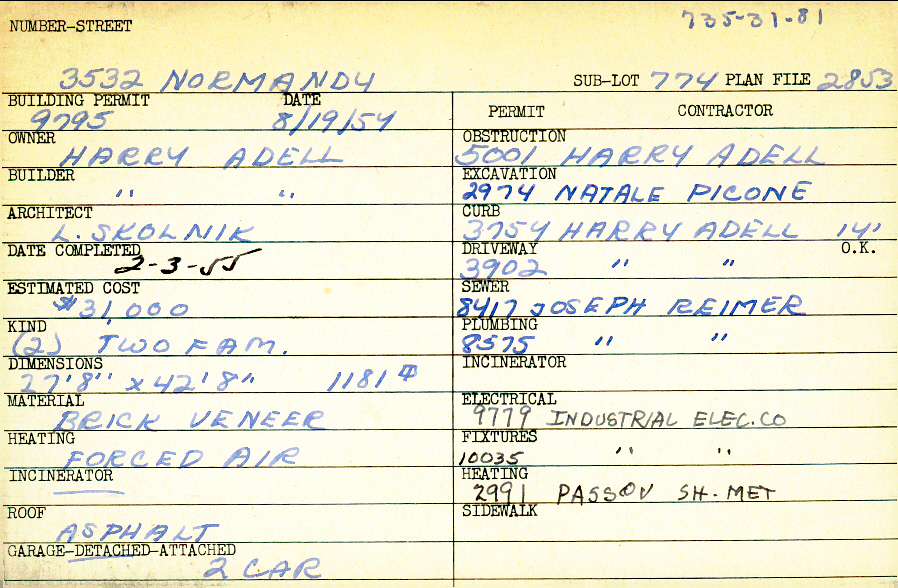 735-31-81
NUMBER-STREET
3532 NORMANDY SUB-LOT 774 PLAN FILE 2853
BUILDING PERMIT DATE
9795 8/19/54
OWNER
HARRY ADELL
BUILDER
" "
ARCHITECT
L. SKOLNIK
DATE COMPLETED
2-3-55
ESTIMATED COST
$31,000
KIND
(2) TWO FAM.
DIMENSIONS
27'8" x 42'8" 1181
MATERIAL
BRICK VENEER
HEATING
FORCED AIR
INCINERATOR
ROOF
ASPHALT
GARAGE-DETACHED-ATTACHED
2 CAR
PERMIT CONTRACTOR
OBSTRUCTION
5001 HARRY ADELL
EXCAVATION
2974 NATALE PICONE
CURB
3754 HARRY ADELL 14'
DRIVEWAY O.K.
3902 " "
SEWER
8417 JOSEPH REIMER
PLUMBING
8575 " "
INCINERATOR
ELECTRICAL
9779 INDUSTRIAL ELEC. CO
FIXTURES
10035 " "
HEATING
2991 PASSOV SH. MET
SIDEWALK